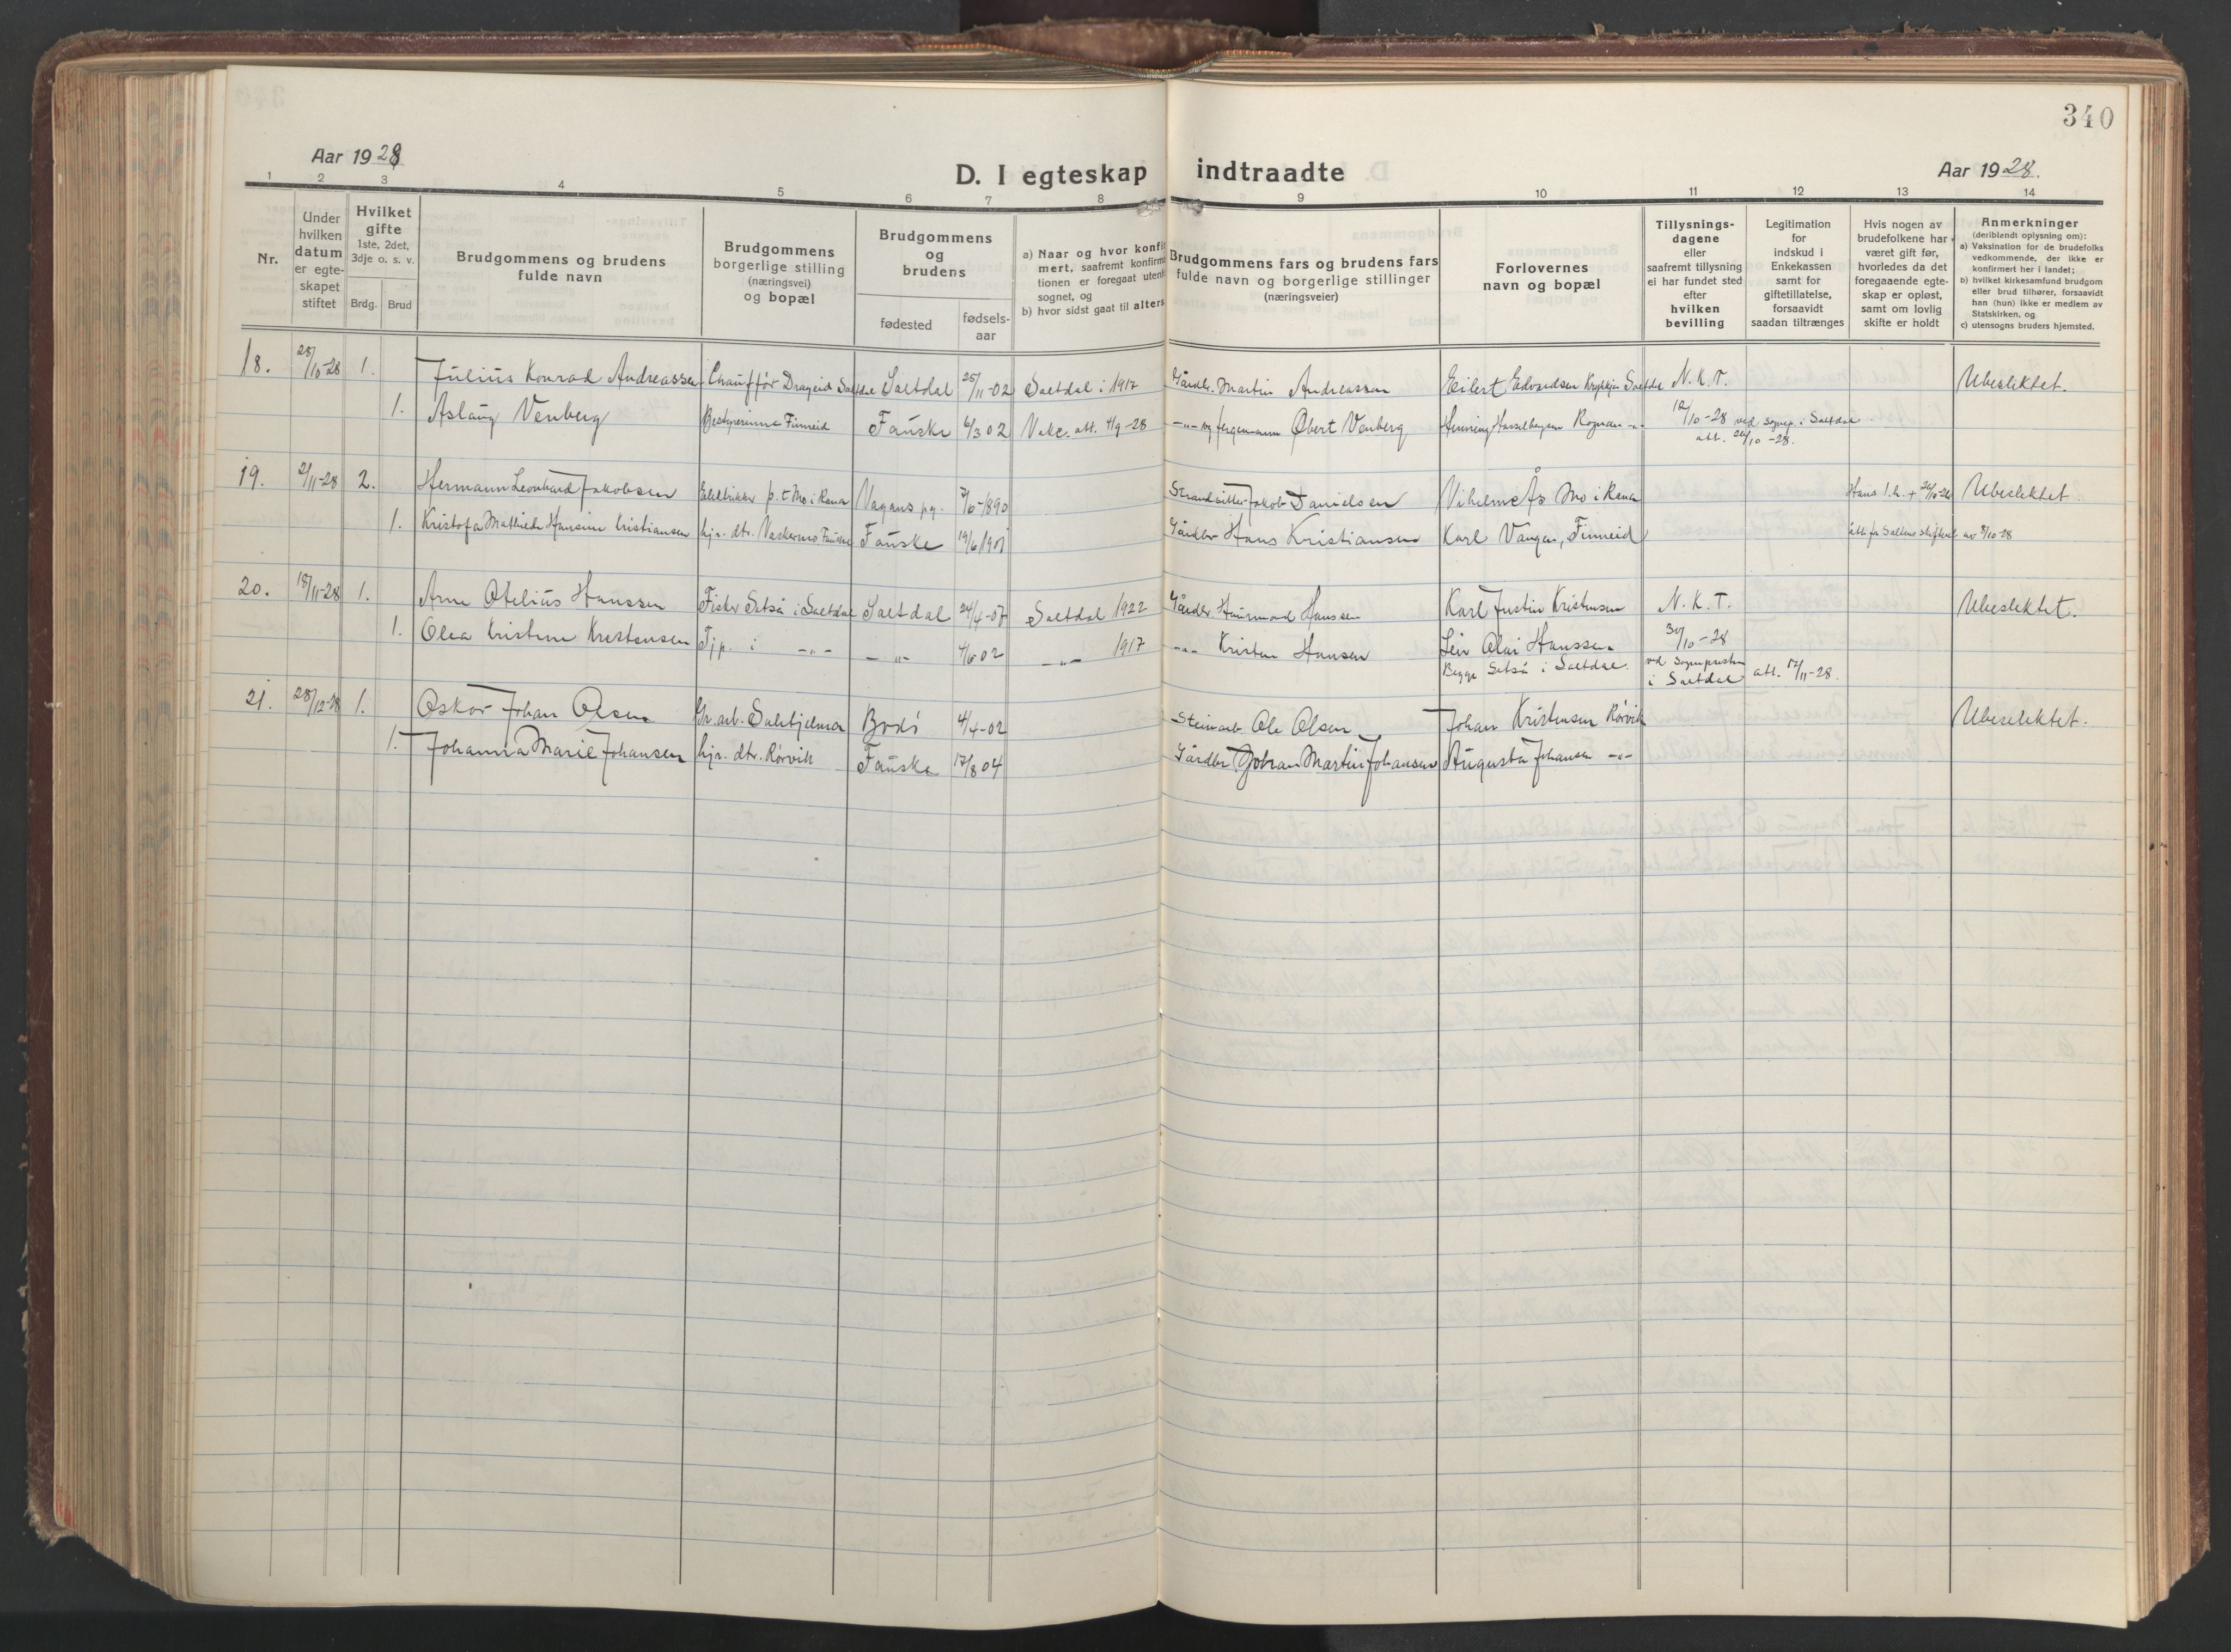 340
Aar 1928
D. I egteskap indtraadte
Aar 1928.
1 2 3 4 5 6 7 8 9 10 11 12 13 14
Nr.
Under
hvilken
datum
er egte-
skapet
stiftet
Hvilket
gifte
1ste, 2det,
3dje o. s. v.
Brdg. Brud
Brudgommens og brudens
fulde navn
Brudgommens
borgerlige stilling
(næringsvei)
og bopæl
Brudgommens
og
brudens
fødested
fødsels-
aar
a) Naar og hvor konfir
mert, saafremt konfirma
tionen er foregaat uten
sognet, og
b) hvor sidst gaat til alters
Brudgommens fars og brudens fars
fulde navn og borgerlige stillinger
(næringsveier)
Forlovernes
navn og bopæl
Tillysnings-
dagene
eller
saafremt tillysning
ei har fundet sted
efter
hvilken
bevilling
Legitimation
for
indskud i
Enkekassen
samt for
giftetillatelse,
forsaavidt
saadan tiltrænges
Hvis nogen av
brudefolkene har
været gift før,
hvorledes da det
foregaaende egte-
skap er opløst,
samt om lovlig
skifte er holdt
Anmerkninger
(deriblandt oplysning om):
a) Vaksination for de brudefolks
vedkommende, der ikke er
konfirmert her i landet;
b) hvilket kirkesamfund brudgom
eller brud tilhører, forsaavidt
han (hun) ikke er medlem av
Statskirken, og
c) utensogns bruders hjemsted.
18. 28/10-28 1. Julius Konrad Andreassen Chauffør Drageid Saltdal Saltdal 25/11-02 Saltdal i 1917 Gårdbr. Martin Andreassen Eilert Edvardsen Saltdal N.K.T. Ubeslektet.
1. Aslaug Venberg Bestyrerinne Finneid Fauske 6/3 02 Vakc. att. 4/9-28 -"- og fergemann Obert Venberg Henning Hasselbergsen Rognan -"- 12/10-28 ved sognep. i Saltdal
att. 26/10-28.
19. 2/11-28 2. Hermann Leonhard Jakobsen Elektriker p.t. Mo i Rana Vagans pg. 7/6-1890 Strandsitter Jakob Danielsen Vilhelm Ås Mo i Rana Hans 1. h. + Ubeslektet.
1. Kristofa Mathilde Hansine Kristiansen hjv. dtr. Vaskermo Fauske Fauske 19/6 1901 Gårdbr Hans Kristiansen Karl Vangen, Finneid att. fra Saltens skifterett av 8/10-28
20. 18/11-28 1. Arne Otelius Hanssen Fisker Setså i Saltdal Saltdal 24/4-07 Saltdal 1922 Gårdbr. Hanssen Karl Justin Kristensen N.K.T. Ubeslektet.
1. Olea Kristine Kristensen Tjp. i -"- -"- 4/6-02 -"- 1917 -"- Kristen Hansen Leiv Olai Hanssen 30/10-28
Begge Setså i Saltdal. ved sognepresten
i Saltdal att. 17/11-28.
21. 28/12-28 1. Oskar Johan Olsen Gr. arb. Sulitjelma Bodø 4/4-02 Steinarb. Ole Olsen Johan Kristensen Rørvik Ubeslektet.
1. Johanna Marie Johansen hjv. dtr. Rørvik Fauske 17/8 04 Gårdbr Johan Martin Johansen Augusta Johansen -"-